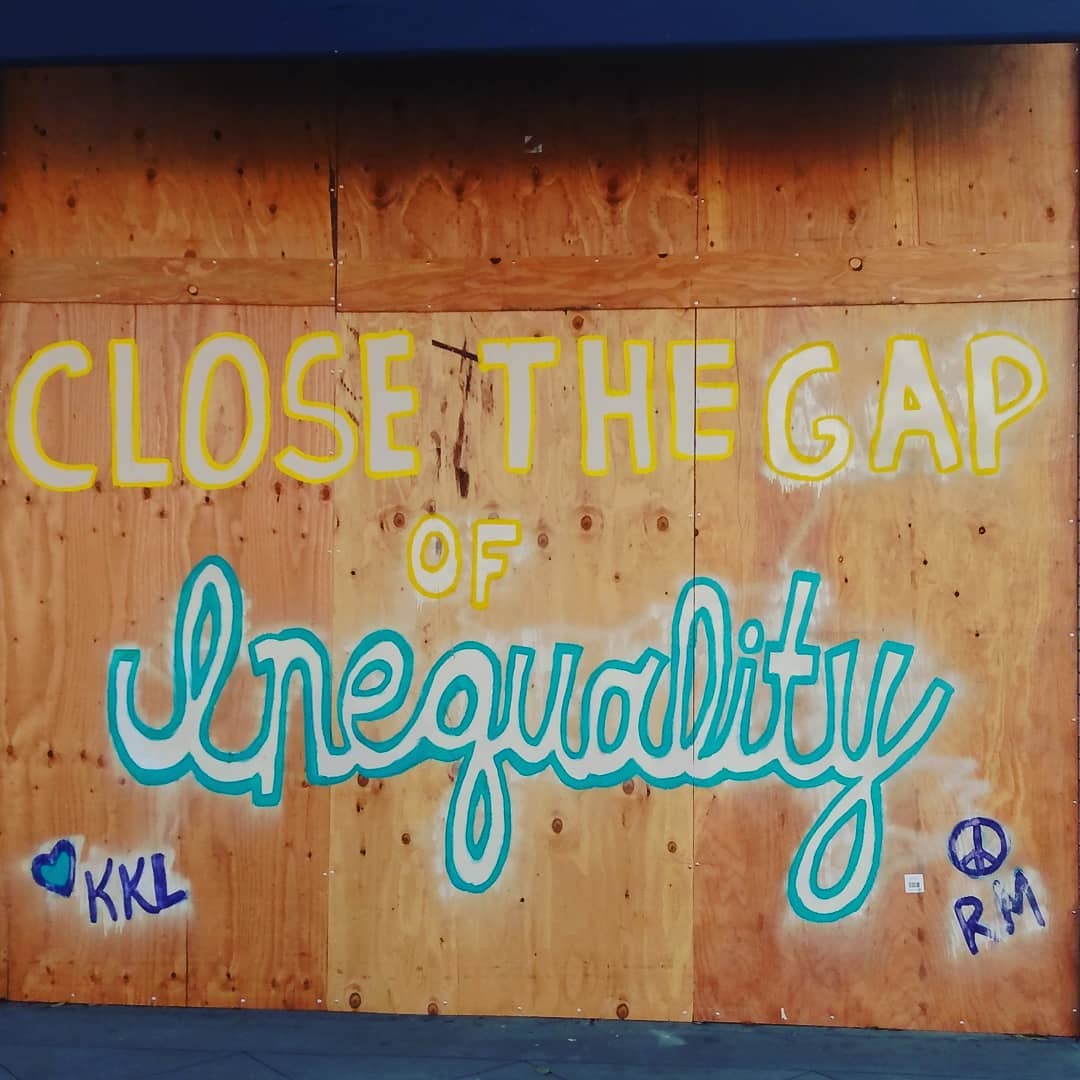 CLOSE THE GAP
OF
Inequality
KKL
RM